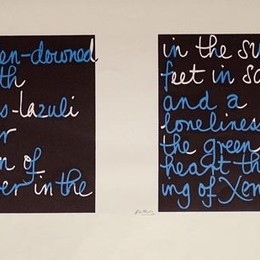 en-downed
th
s-lazuli
r
n of
er in the
in the su
feet in sa
and a
loneliness
the green
heart th
ing of Xen